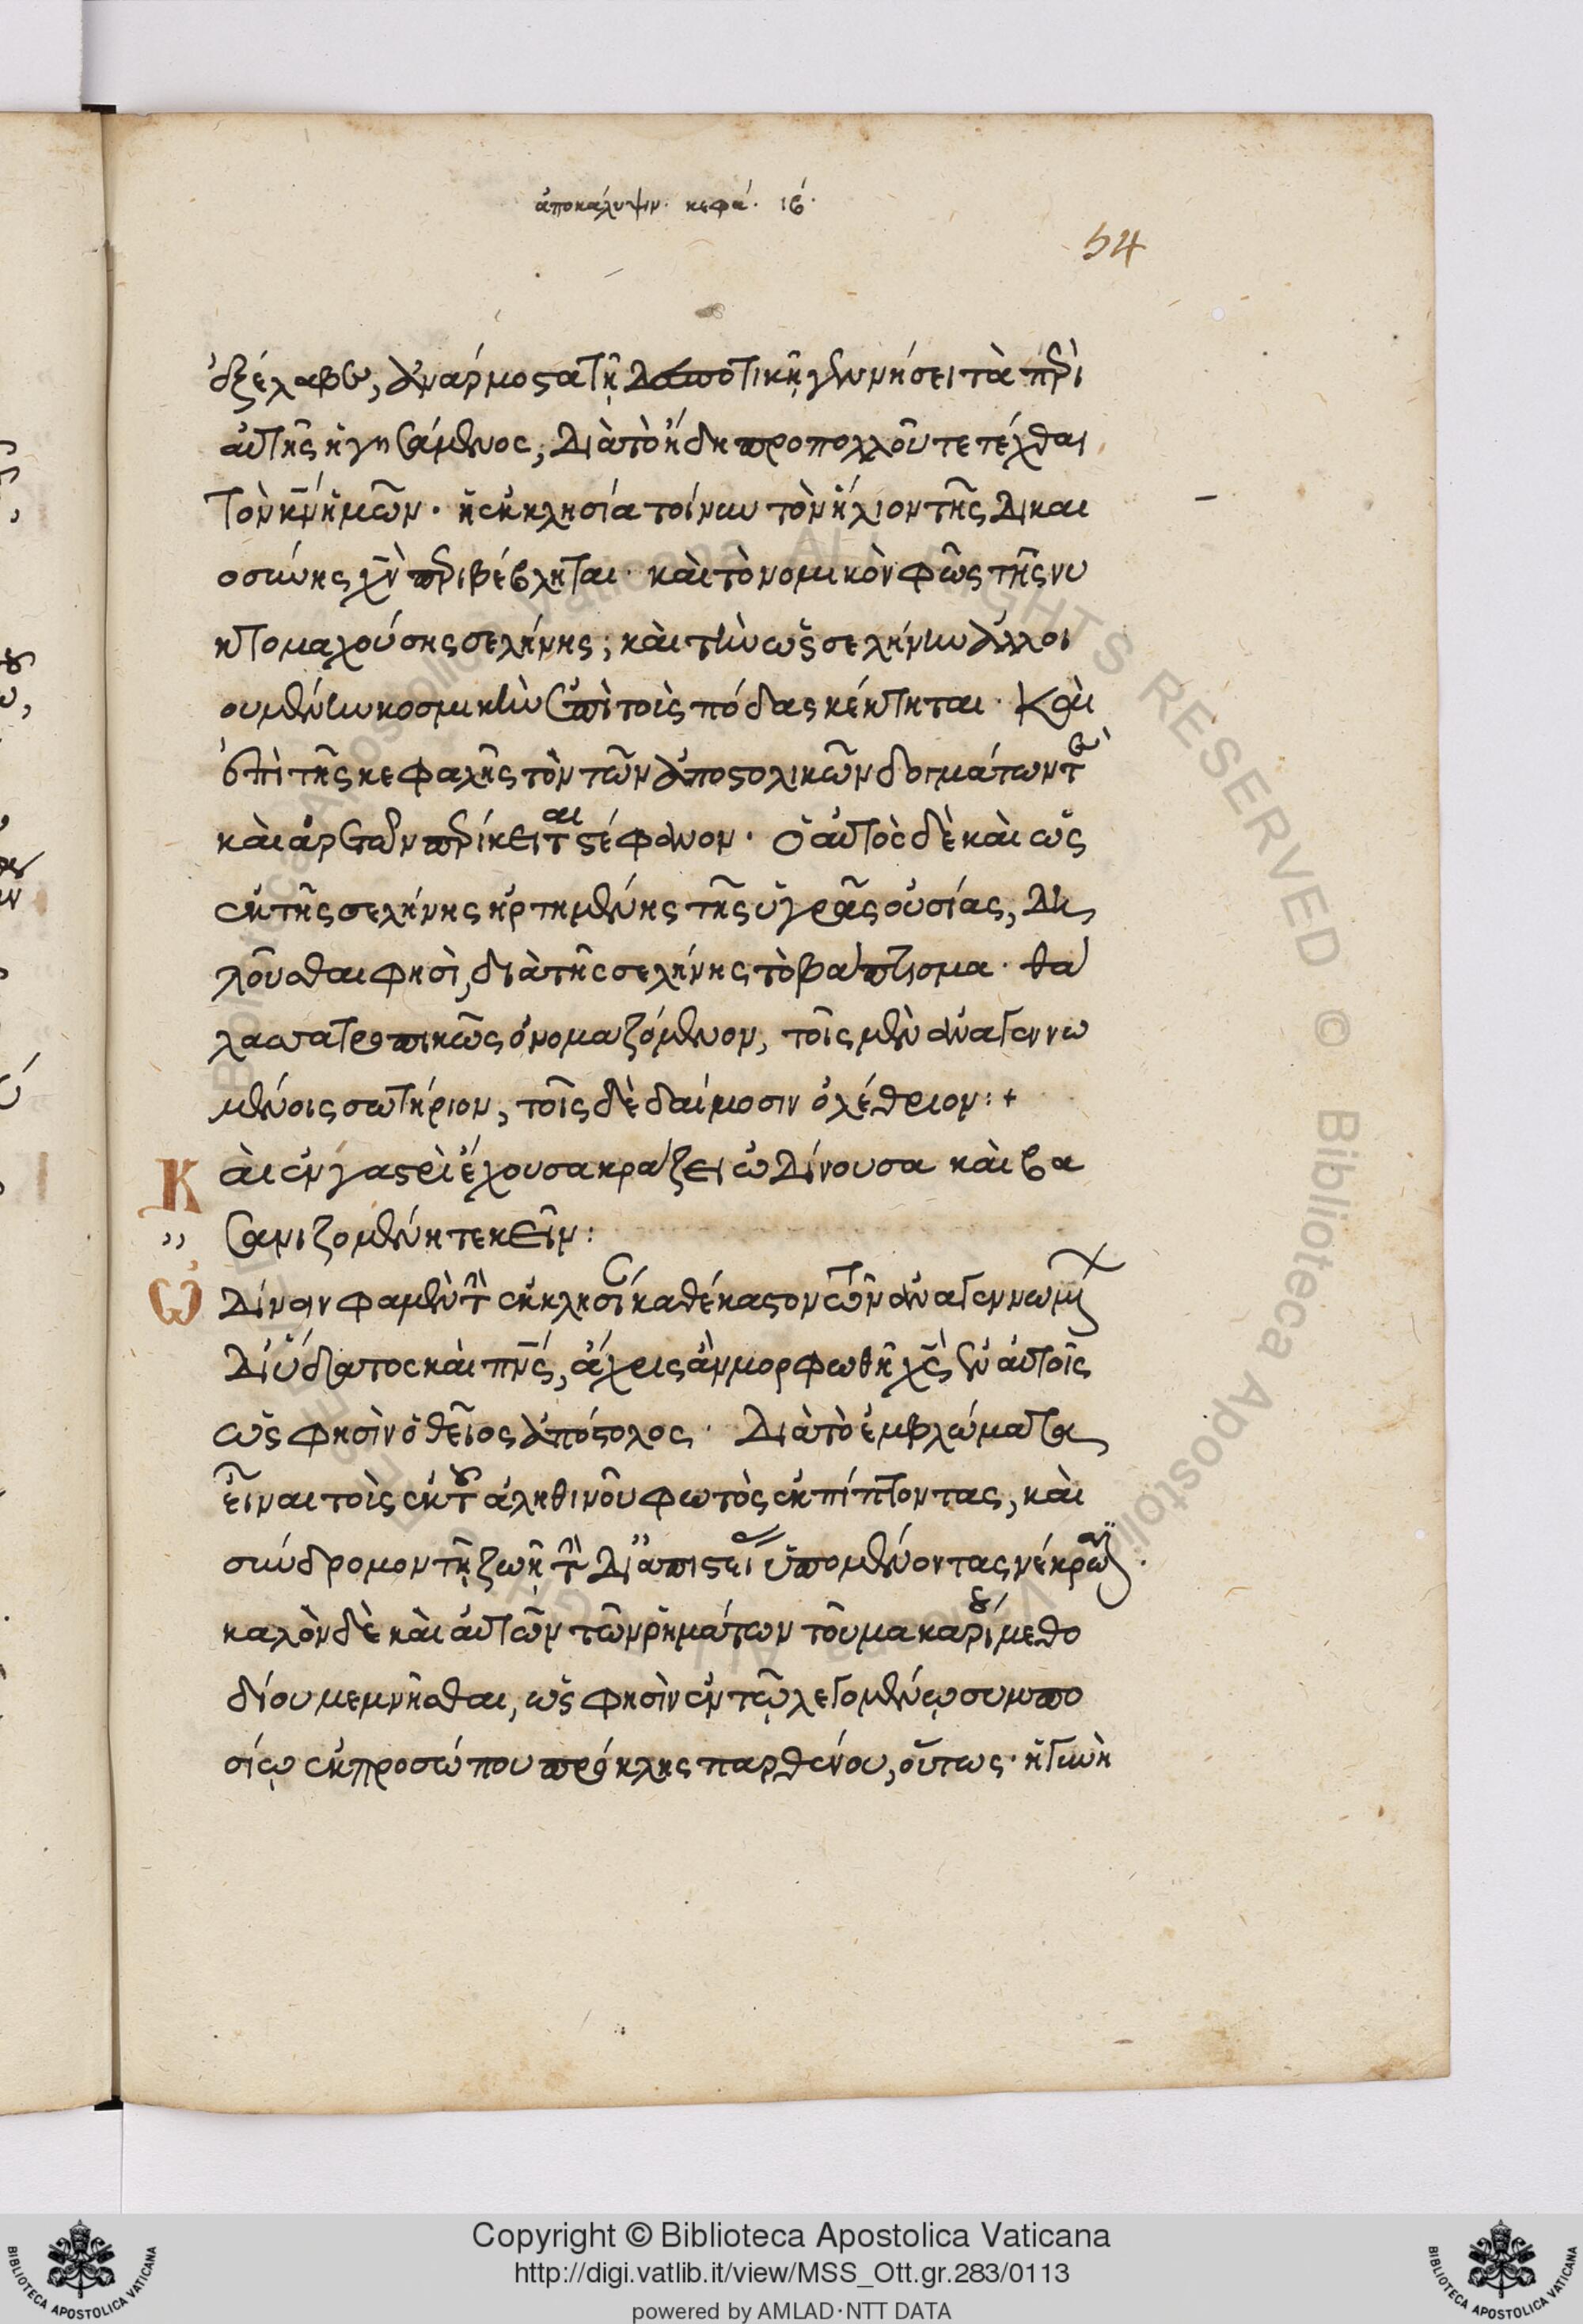 ἀποκάλυψιν. κεφά. ιβ΄.
54
ἐξέλαβεν, ἀναρμοστα τῆ δεσποτικῆ γεννήσει τὰ περὶ
αὐτῆς ἡγησάμενος, διὰ τὸ ἤδη προ πολλοῦ τετέχθαι
τὸν κν ἡμῶν. ἡ ἐκκλησία τοίνυν τὸν ἥλιον τῆς δικαι
οσύνης χν περιβέβληται. καὶ τὸ νομικὸν φῶς τῆς νυ
κτομαχούσης σελήνης, καὶ τὴν ὡς σελήνην ἀλλοι
ουμένην κοσμικὴν ἐπὶ τοὺς πόδας κέκτηται. Καὶ
ἐπὶ τῆς κεφαλῆς τὸν τῶν ἀποστολικῶν δογμάτων τε
καὶ ἀρετῶν περίκειται στέφανον. ὁ αὐτὸς δὲ καὶ ὡς
ἐκ τῆς σελήνης ἠρτημένης τῆς ὑγρᾶς οὐσίας, δη
λοῦσθαι φησὶ, διὰ τῆς σελήνης τὸ βάπτισμα. θά
λασσα τροπικῶς ὀνομαζόμενον, τοῖς μὲν ἀναγεννω
μένοις σωτήριον, τοῖς δὲ δαίμοσιν ὀλέθριον:+
Καὶ ἐν γαστρὶ ἔχουσα κράζει ὠδίνουσα καὶ βα
σανιζομένη τεκεῖν:
Ὠδίνειν φαμὲν τὴν ἐκκλησίαν καθέκαστον τῶν ἀναγεννωμένων
δι ὕδατος καὶ πνς, ἄχρις ἂν μορφωθῆ χς ἐν αὐτοῖς
ὥς φησὶν ὁ θεῖος ἀπόστολος. διὰ τὸ ἐμβλώματα
εἶναι τοὺς ἐκ τοῦ ἀληθινοῦ φωτὸς ἐκπίπτοντας, καὶ
σύνδρομον τῆ ζωῆ τὴν δι ἀπιστείας ὑπομένοντας νέκρωσιν.
καλὸν δὲ καὶ αὐτῶν τῶν ρημάτων τοῦ μακαρίου μεθο
δίου μεμνῆσθαι, ὥς φησὶν ἐν τῷ λεγομένῳ συμπο
σίῳ ἐκ προσώπου πρόκλης παρθένου, οὕτως. ἡ γυνὴ
Copyright © Biblioteca Apostolica Vaticana
http://digi.vatlib.it/view/MSS_Ott.gr.283/0113
powered by AMLAD·NTT DATA
BIBLIOTECA APOSTOLICA VATICANA
BIBLIOTECA APOSTOLICA VATICANA